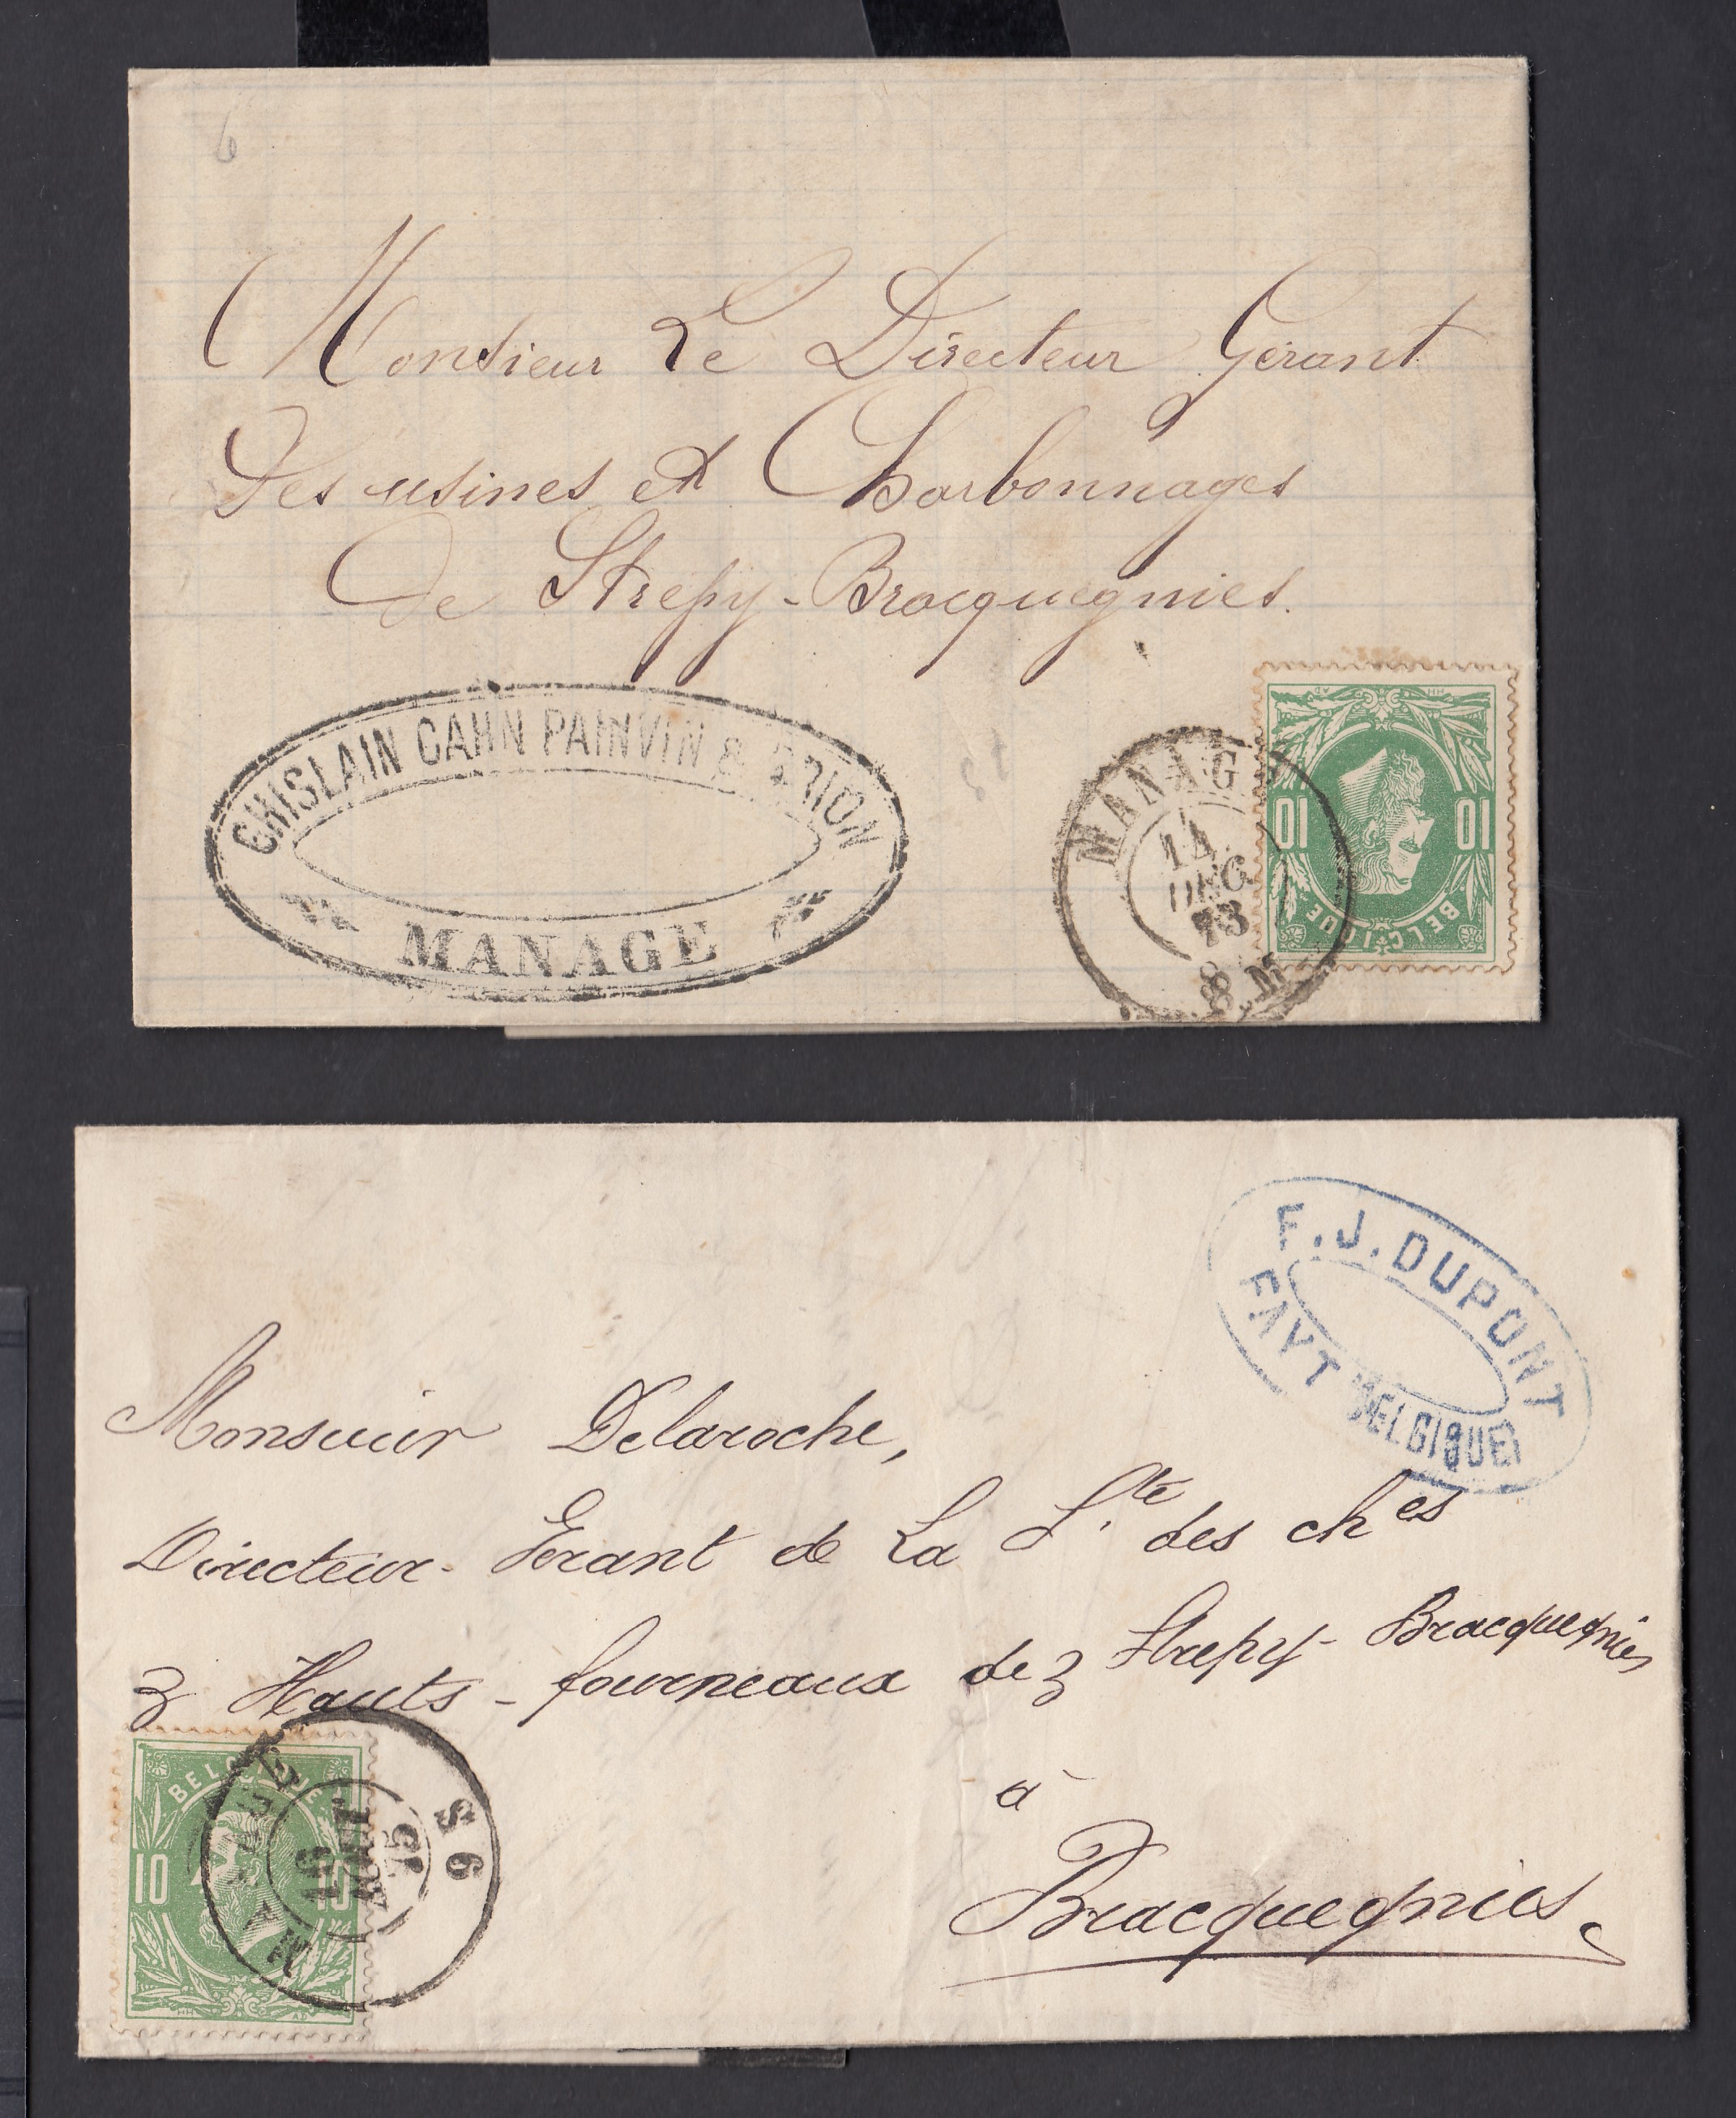 6
Monsieur Le Directeur Gérant
Des usines et Charbonnages
de Strepy-Bracquegnies.
GHISLAIN CAHN PAINVIN & BRION
MANAGE
MANAGE
14
DEC
73
8 M
10 10
BELGIQUE
F.J. DUPONT
FAYT BELGIQUE
Monsieur Delaroche,
Directeur-Gérant de La Sté des ches
& Hauts-fourneaux de Strepy-Bracquegnies
à
Bracquegnies
BELGIQUE
10 10
MANAGE
16
75
6 S